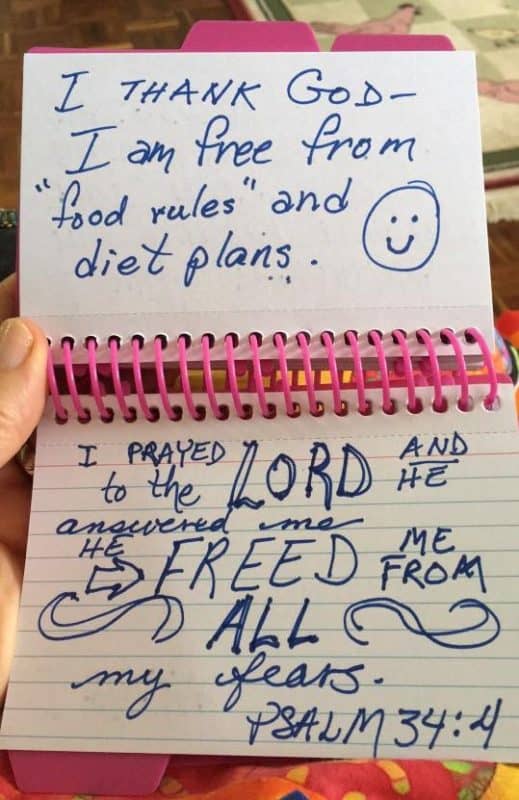 I THANK GOD-
I am free from
"food rules" and
diet plans.
I PRAYED AND
to the LORD HE
answered me
HE FREED ME
FROM
ALL
my fears.
PSALM 34:4